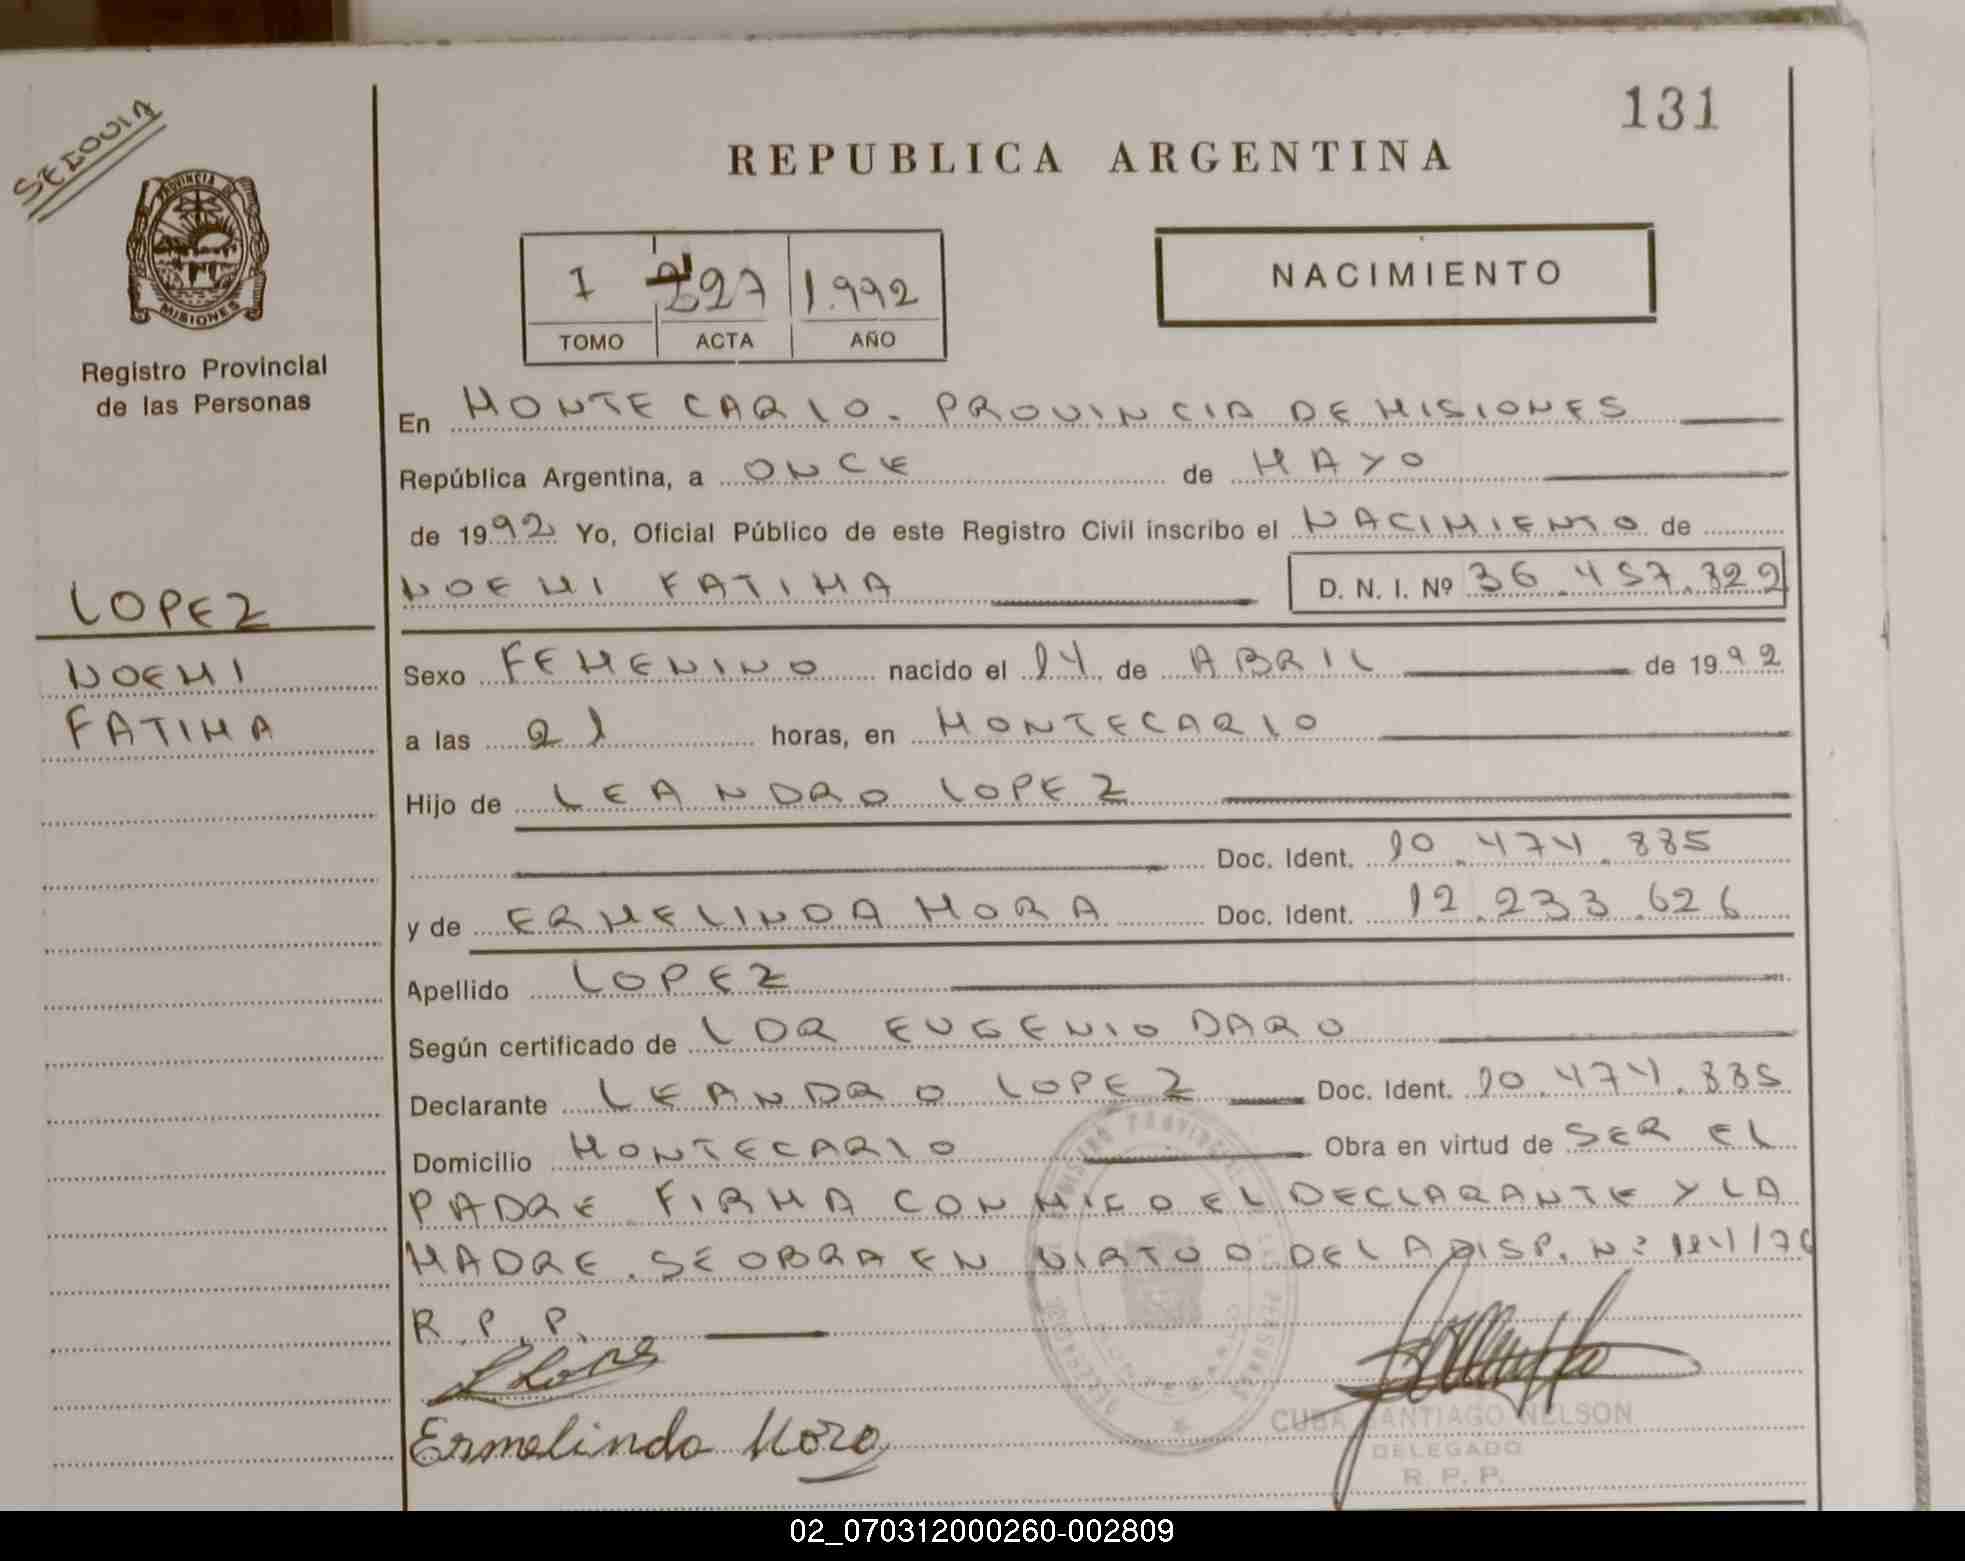 131
SEGOVIA
REPUBLICA ARGENTINA
PROVINCIA DE
MISIONES
Registro Provincial
de las Personas
I 227 1.992
TOMO ACTA AÑO
NACIMIENTO
En MONTECARLO - PROVINCIA DE MISIONES
República Argentina, a ONCE de MAYO
de 1992 Yo, Oficial Público de este Registro Civil inscribo el NACIMIENTO de
NOEMI FATIMA D. N. I. Nº 36.457.322
LOPEZ
NOEMI
FATIMA
Sexo FEMENINO nacido el 14 de ABRIL de 1992
a las 21 horas, en MONTECARLO
Hijo de LEANDRO LOPEZ
Doc. Ident. 10.474.885
y de ERMELINDA MORA Doc. Ident. 12.233.626
Apellido LOPEZ
Según certificado de LDR EUGENIO DARO
Declarante LEANDRO LOPEZ Doc. Ident. 10.474.885
Domicilio MONTECARLO Obra en virtud de SER EL
PADRE FIRMA CONMIGO EL DECLARANTE Y LA
MADRE. SE OBRA EN VIRTUD DE LA DISP. Nº
R.P.P.
Ermelinda Mora
CUBA SANTIAGO NELSON
DELEGADO
R. P. P.
02_070312000260-002809